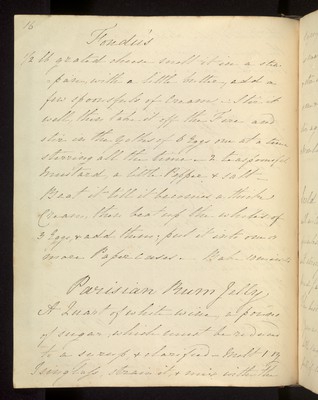 16
Fondu's
1/2 lb grated cheese melt it in a stew
pan, with a little butter, add a
few spoonfuls of Cream - Stir it
well, then take it off the Fire and
stir in the Yolks of 3 Eggs one at a time
stirring all the time - 2 teaspoonfuls
mustard, a little Pepper & salt -
Beat it till it becomes a thick
Cream, then beat up the whites of
3 Eggs, & add them, put it into one or
more Paper cases - Bake
Parisian Rum Jelly
A Quart of white wine, a pound
of sugar which must be reduced
to a syrup & clarified - Melt 1 oz
Isinglass, strain it, & mix with the